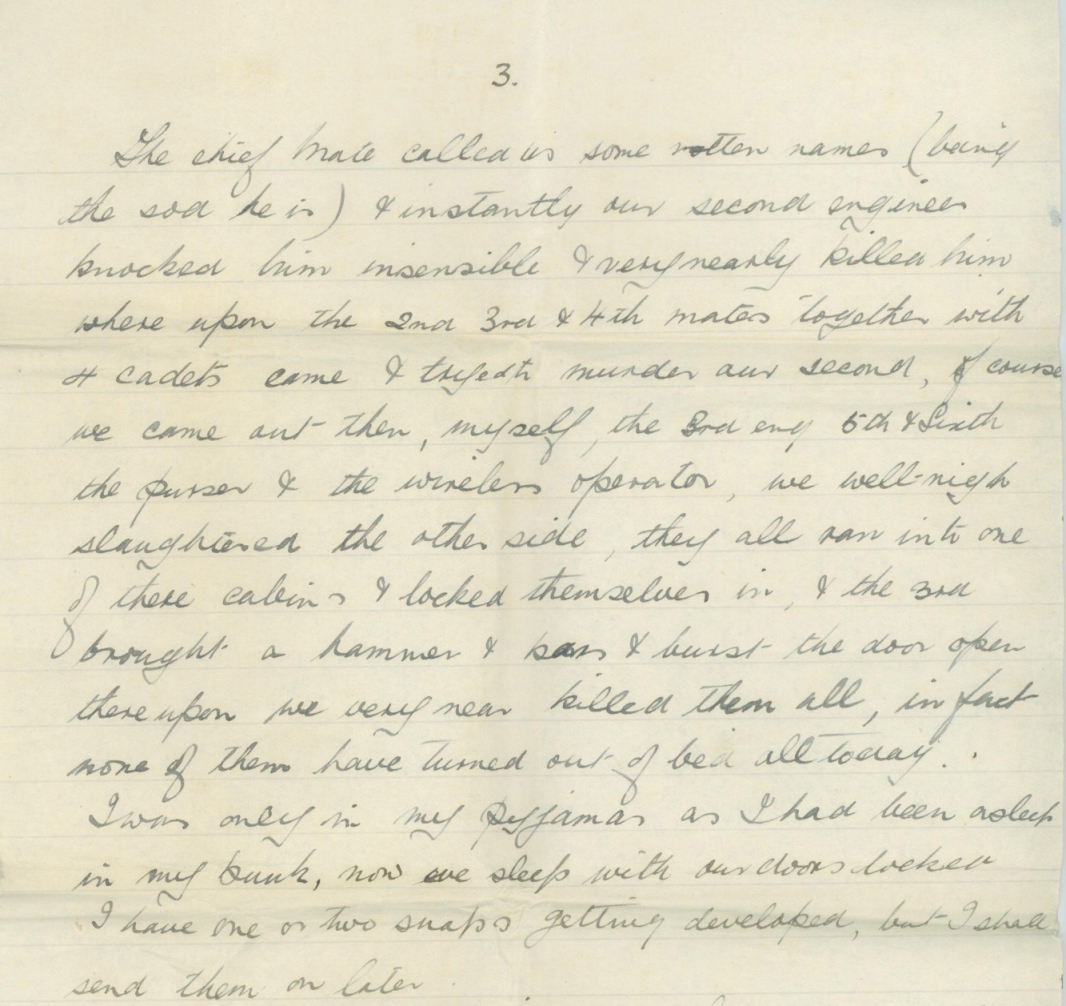 3.
The chief mate called us some rotten names (being
the sod he is) & instantly our second engineer
knocked him insensible & very nearly killed him
where upon the 2nd 3rd & 4th mates together with
4 cadets came & tryed to murder our second, of course
we came out then, myself, the 3rd eng 5th & Sixth
the purser & the wireless operator, we well-nigh
slaughtered the other side, they all ran into one
of there cabins & locked themselves in, & the 3rd
brought a hammer & bars & burst the door open
there upon we very near killed them all, in fact
none of them have turned out of bed all today.
I was only in my pyjamas as I had been asleep
in my bunk, now we sleep with our doors locked
I have one or two snaps getting developed, but I shall
send them on later